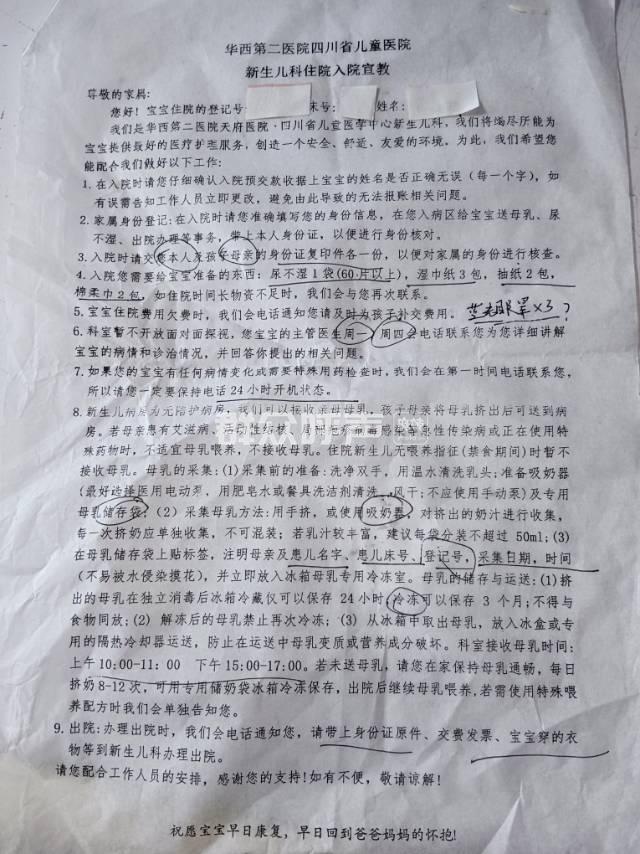 华西第二医院四川省儿童医院
新生儿科住院入院宣教
尊敬的家属:
您好! 宝宝住院的登记号 床号: 姓名:
我们是华西第二医院天府医院·四川省儿童医学中心新生儿科, 我们将竭尽所能为
宝宝提供最好的医疗护理服务, 创造一个安全、舒适、友爱的环境。为此, 我们希望您
能配合我们做好以下工作:
1. 在入院时请您仔细确认入院预交款收据上宝宝的姓名是否正确无误 (每一个字), 如
有误需告知工作人员立即更改, 避免由此导致的无法报账相关问题。
2. 家属身份登记: 在入院时请您准确填写您的身份信息, 在您入病区给宝宝送母乳、尿
不湿、出院办理等事务, 带上本人身份证, 以便进行身份核对。
3. 入院时请交 本人及孩子母亲的身份证复印件各一份, 以便对家属的身份进行核查。
4. 入院您需要给宝宝准备的东西: 尿不湿 1 袋(60 片以上), 湿巾纸 3 包, 抽纸 2 包,
棉柔巾 2 包, 如住院时间长物资不足时, 我们会与您再次联系。
5. 宝宝住院费用欠费时, 我们会电话通知您请及时为孩子补交费用。 眼罩×3?
6. 科室暂不开放面对面探视, 您宝宝的主管医生周一、周四会电话联系您为您详细讲解
宝宝的病情和诊治情况, 并回答你提出的相关问题。
7. 如果您的宝宝有任何病情变化或需要特殊用药检查时, 我们会在第一时间电话联系您,
所以请您一定要保持电话 24 小时开机状态。
8. 新生儿病房为无陪护病房, 我们可以接收亲母母乳, 孩子母亲将母乳挤出后可送到病
房。若母亲患有艾滋病、活动性结核、 感染等急性传染病或正在使用特
殊药物时, 不适宜母乳喂养, 不接收母乳。住院新生儿无喂养指征(禁食期间)时暂不
接收母乳。母乳的采集: (1)采集前的准备: 洗净双手, 用温水清洗乳头; 准备吸奶器
(最好选择医用电动泵, 用肥皂水或餐具洗洁剂清洗 风干; 不应使用手动泵)及专用
母乳储存袋; (2) 采集母乳方法: 用手挤, 或使用吸奶器, 对挤出的奶汁进行收集,
每一次挤奶应单独收集, 不可混装; 若乳汁较丰富, 建议每袋分装不超过 50ml; (3)
在母乳储存袋上贴标签, 注明母亲及患儿名字、患儿床号、登记号, 采集日期, 时间
(不易被水侵染摸花), 并立即放入冰箱母乳专用冷冻室。母乳的储存与运送: (1) 挤
出的母乳在独立消毒后冰箱冷藏仪可以保存 24 小时, 冷冻可以保存 3 个月; 不得与
食物同放; (2) 解冻后的母乳禁止再次冷冻; (3) 从冰箱中取出母乳, 放入冰盒或专
用的隔热冷却器运送, 防止在运送中母乳变质或营养成分破坏。科室接收母乳时间:
上午 10:00-11: 00 下午 15:00-17:00。若未送母乳, 请您在家保持母乳通畅, 每日
挤奶 8-12 次, 可用专用储奶袋冰箱冷冻保存, 出院后继续母乳喂养, 若需使用特殊喂
养配方时我们会单独告知您。
9. 出院: 办理出院时, 我们会电话通知您, 请带上身份证原件、交费发票、宝宝穿的衣
物等到新生儿科办理出院。
请您配合工作人员的安排, 感谢您的支持! 如有不便, 敬请谅解!
祝愿宝宝早日康复, 早日回到爸爸妈妈的怀抱!
群众呼声